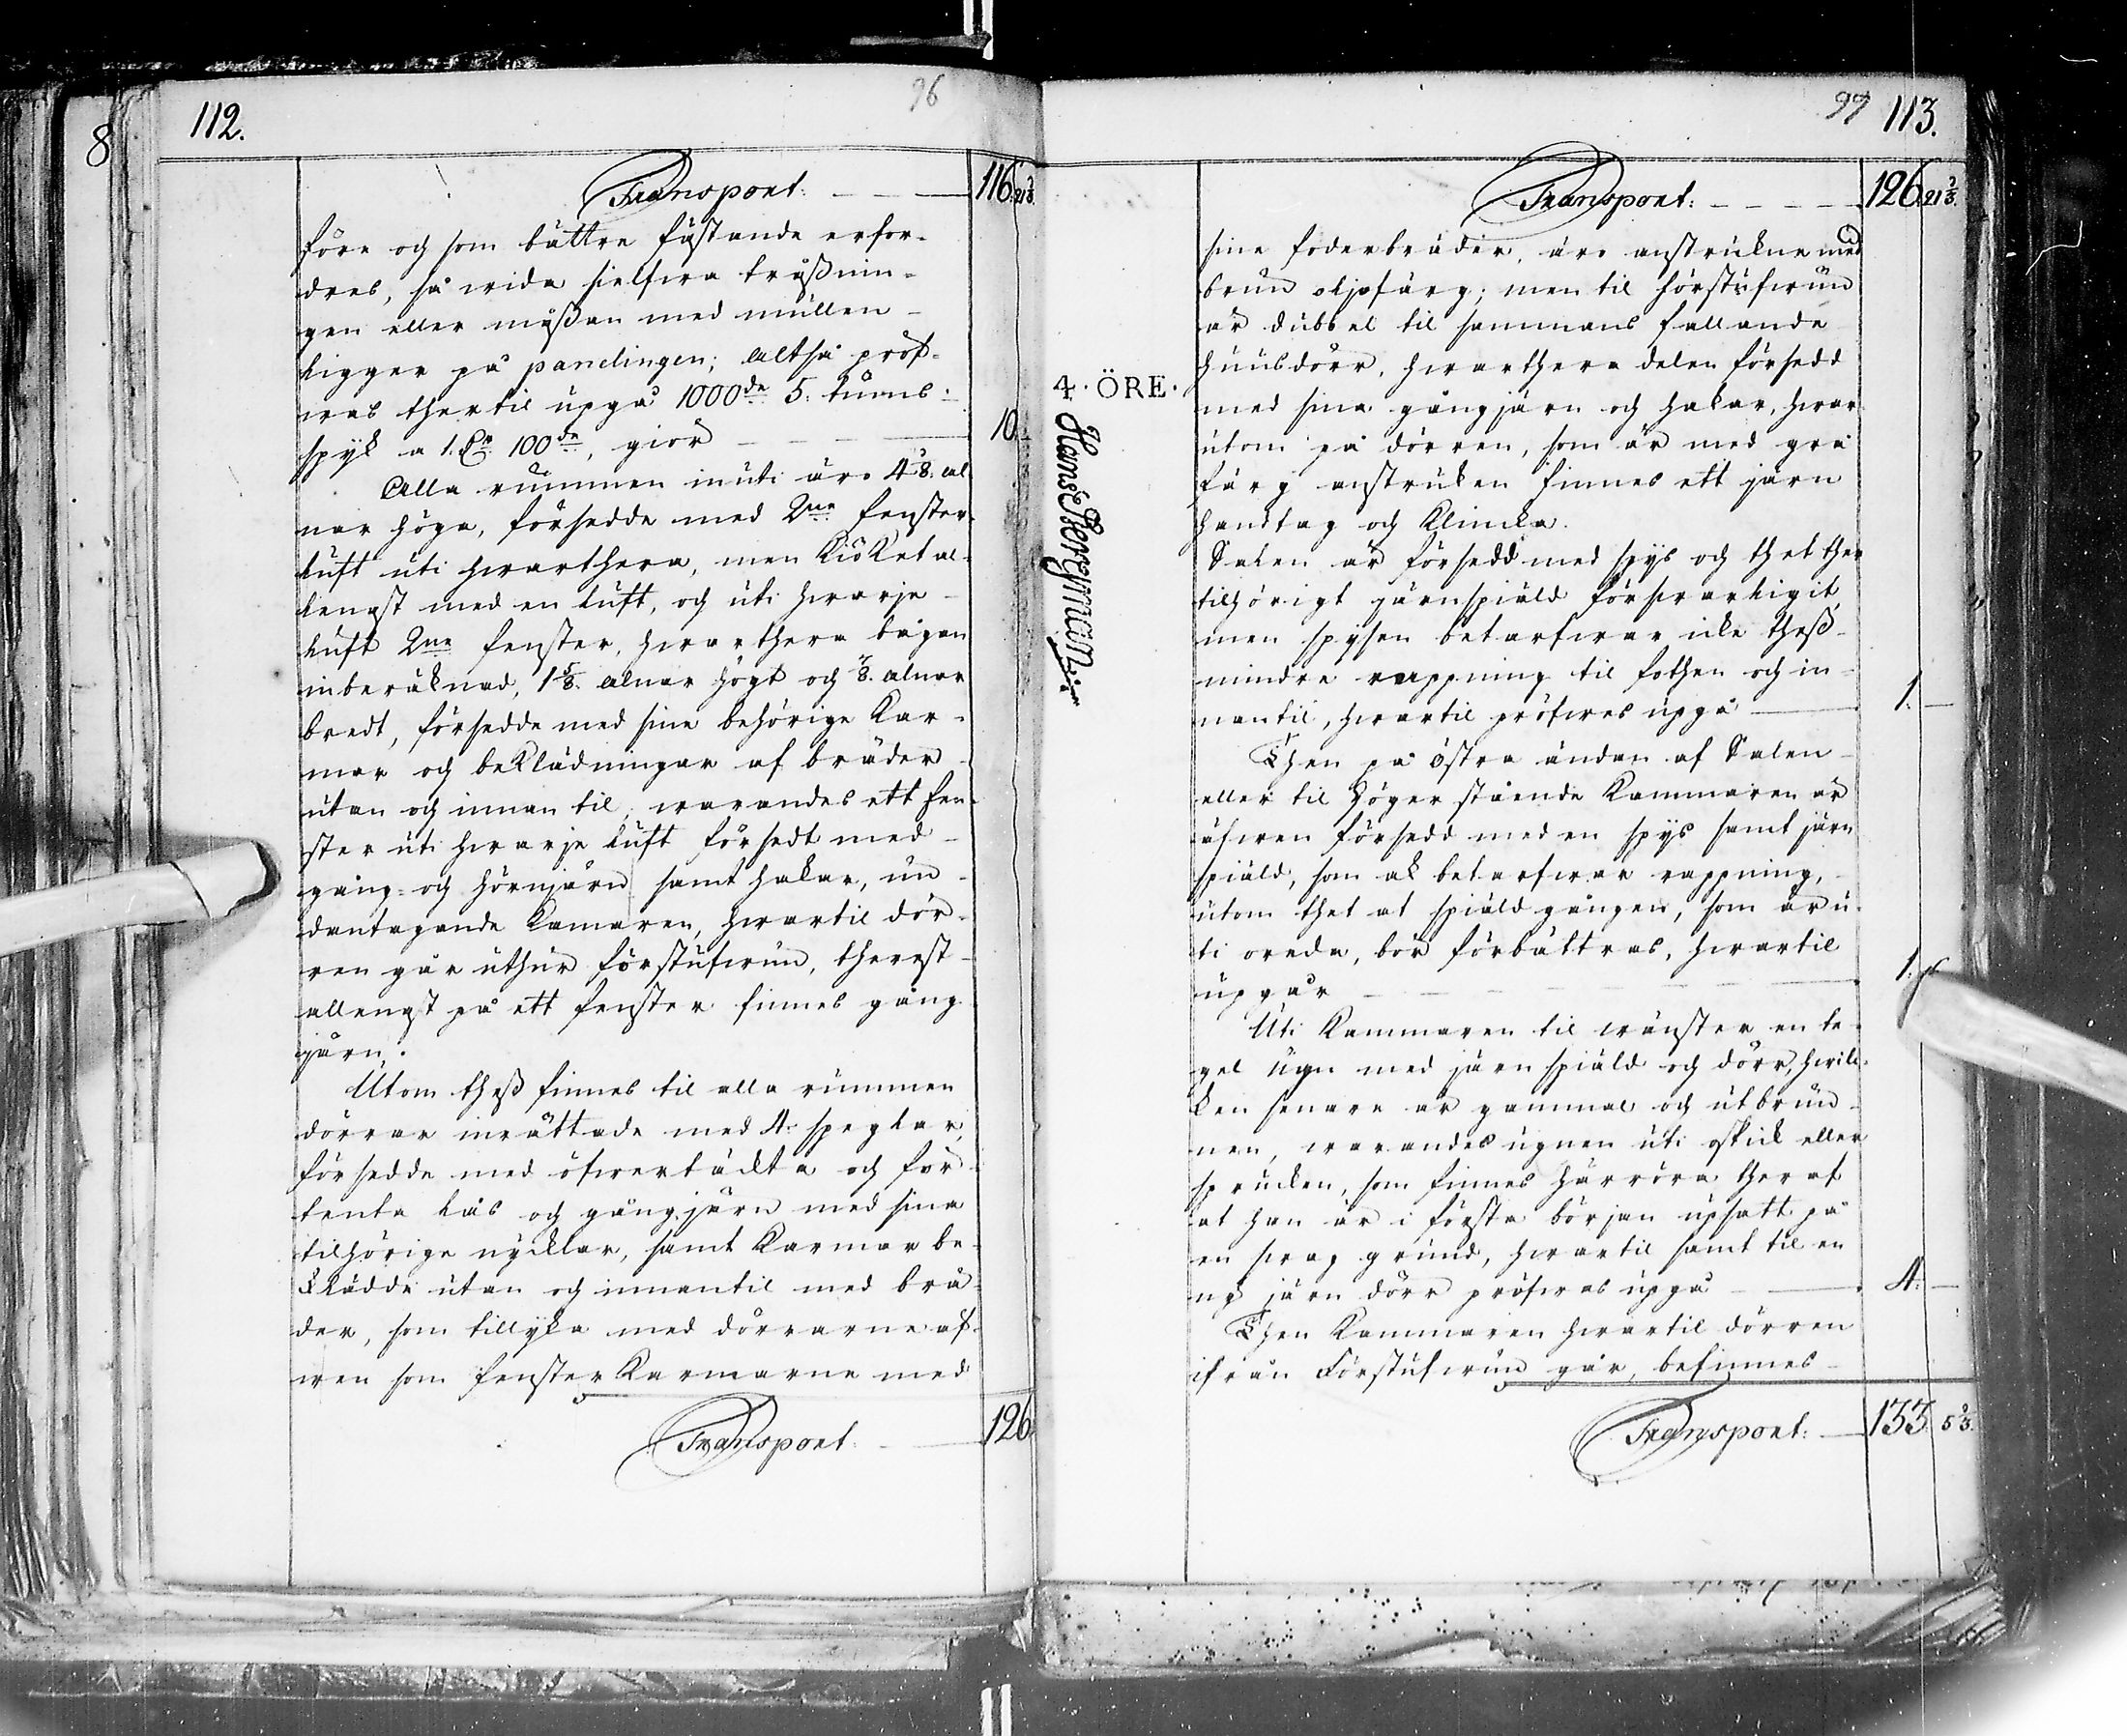 112.
96
Transport: 116. 21 1/3.
före och som bättre fästande erfor-
dres, så wida sielfwa tråßnin-
gen eller måßan med müllen
ligger på panelingen; altså pröf-
was thertil upgå 1000de 5. tums:
spyk a 1. 100de, giör 10.
Alla rummen inuti äro 4 1/8. al-
nar höga, försedde med 2ne fenster-
luft uti hwarthera, men Kiöket al-
lenast med en luft, och uti hwarje
luft 2ne fenster, hwarthera bågan
inberäknad, 1 5/8. alnar högt och 7/8. alnar
bredt, försedde med sine behörige Kar-
mar och beklädningar af bräder
utan och innan til, warandes ett fen-
ster uti hwarje luft försedt med
gång- och hörnjärn samt hakar, un-
dantagande Kamaren, hwartil dör-
ren går uthur förstufwun, therest
allenast på ett fenster finnes gång-
järn.
Utom theß finnes til alla rummen
dörrar inrättade med 4. speglar,
försedde med öfwertäckta och för-
tenta lås och gångjärn med sina
tilhörige nycklar, samt Karmar be-
klädde utan och innantil med brä-
der, som tillyka med dörrarne äf-
wen som fenster Karmarne med
Transport: 126.
97
113.
Transport: 126. 21 1/3.
sine foderbräder, äro anstrukne med
brun oljofärg; men til förstufwun
är dubbel til sammans fallande
huusdörr, hwarthera delen försedd
4. ÖRE.
med sina gångjärn och hakar, hwar
utom på dörren, som är med grå
färg anstruken finnes ett järn
handtag och Klincka.
Salen är försedd med spys och thet ther
tilhörigt järnspiäld förswarligit,
men spysen betarfwar icke theß-
mindre rappning til fothen och in-
nantil, hwartil pröfwes upgå 1.
Then på östra ändan af Salen
eller til höger stående Kammaren är
äfwen försedd med en spys samt järn
spiäld, som ak betarfwar rappning,
utom thet at spiäld gången, som är u-
ti oreda, bör förbättras, hwartil
upgår 1.
Uti Kammaren til wänster en ka-
gel ugn med järn spiäld och dörr, hwil-
ken senare är gammal och utbrun-
nen, warandes ugnen uti oskick eller
sprucken, som finnes härröra theraf
at han är i första början upsatt på
en swag grund, hwartil samt til en
ny järn dörr pröfwas upgå 4.
Then Kammaren hwartil dörren
ifrån Förstufwun går, befinnes
Transport: 133. 5 1/3.